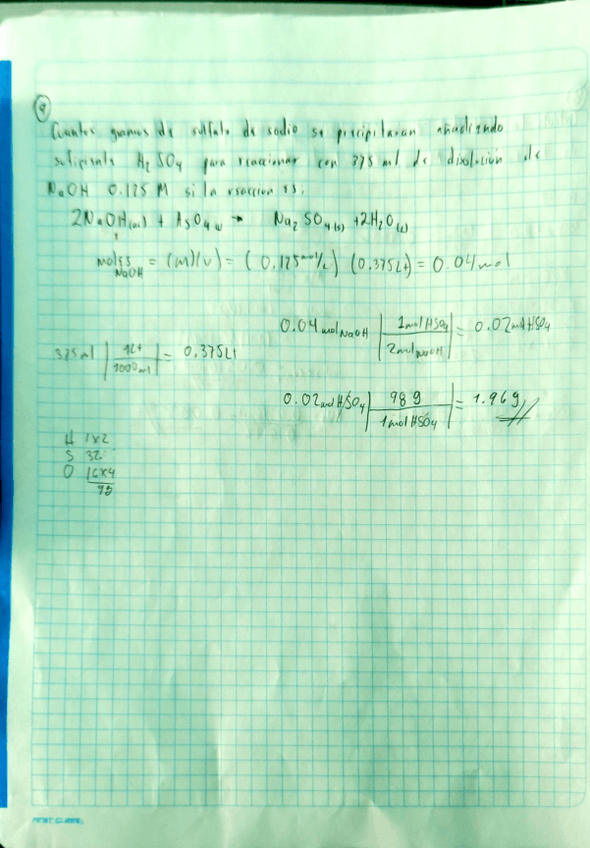 9
Cuantos gramos de sulfato de sodio se precipitaran añadiendo
suficiente H2 SO4 para reaccionar con 375 ml de disolución de
NaOH 0.125 M si la reaccion es:
2NaOH(ac) + H2SO4 → Na2 SO4(s) + 2H2O(l)
moles NaOH = (M)(V) = (0.125 mol/L) (0.375Lt) = 0.04 mol
0.04 mol NaOH | 1mol HSO4 / 2mol NaOH | = 0.02 mol HSO4
375 ml | 1Lt / 1000ml | = 0.375Lt
0.02 mol HSO4 | 98 g / 1 mol HSO4 | = 1.96g //
H 1x2
S 32
O 16x4
98